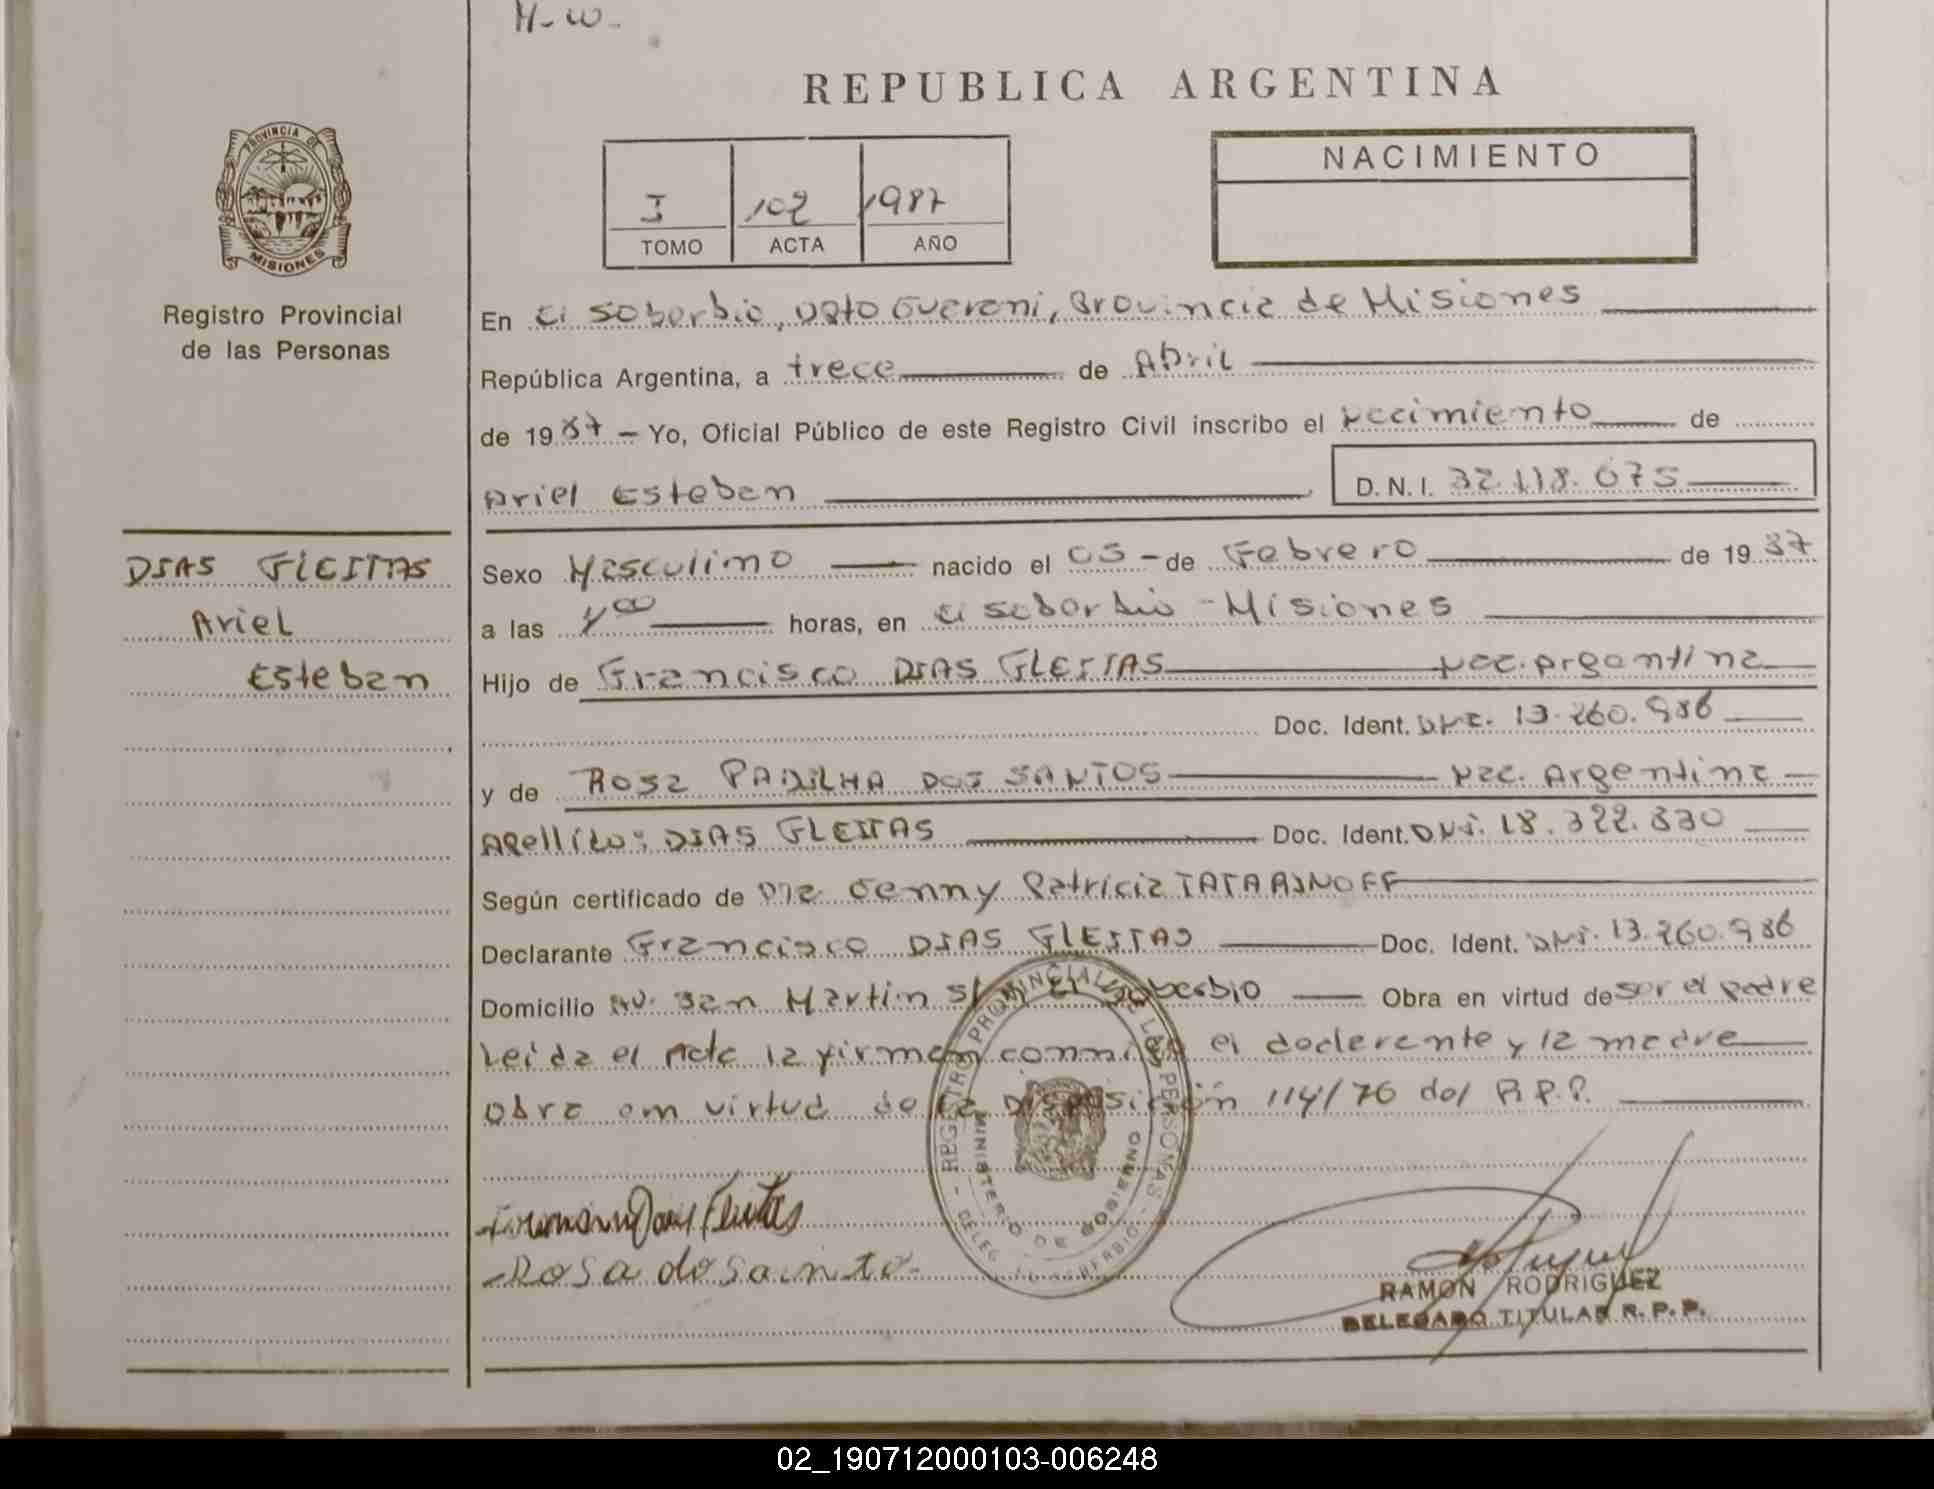 H-W-
REPUBLICA ARGENTINA
PROVINCIA DE
MISIONES
Registro Provincial
de las Personas
I 102 1987
TOMO ACTA AÑO
NACIMIENTO
En El Soberbio, Dpto Guarani, Provincia de Misiones
República Argentina, a trece de Abril
de 19 87 - Yo, Oficial Público de este Registro Civil inscribo el Nacimiento de
Ariel Esteban D. N. I. 32.118.075
DIAS GLEITAS
Ariel
Esteban
Sexo Masculino nacido el 05 - de Febrero de 19 87
a las 4 00 horas, en El Soberbio - Misiones
Hijo de Francisco DIAS GLEITAS Nac. Argentina
Doc. Ident. DNI. 13.260.986
y de Rosa PADILHA DOS SANTOS Nac. Argentina
Apellido: DIAS GLEITAS Doc. Ident. DNI. 18.322.830
Según certificado de Dra Jenny Patricia TATARINOFF
Declarante Francisco DIAS GLEITAS Doc. Ident. DNI. 13.260.986
Domicilio Av. San Martin s/ El Soberbio Obra en virtud de ser el padre
Leida el Acta la firman conmigo el declarante y la madre
obra en virtud de la Disposición 114/76 del R.P.P.
REGISTRO PROVINCIAL DE LAS PERSONAS
MINISTERIO DE GOBIERNO
DELEG. SOBERBIO
Rosa do Santo
RAMON RODRIGUEZ
DELEGADO TITULAR R. P. P.
02_190712000103-006248